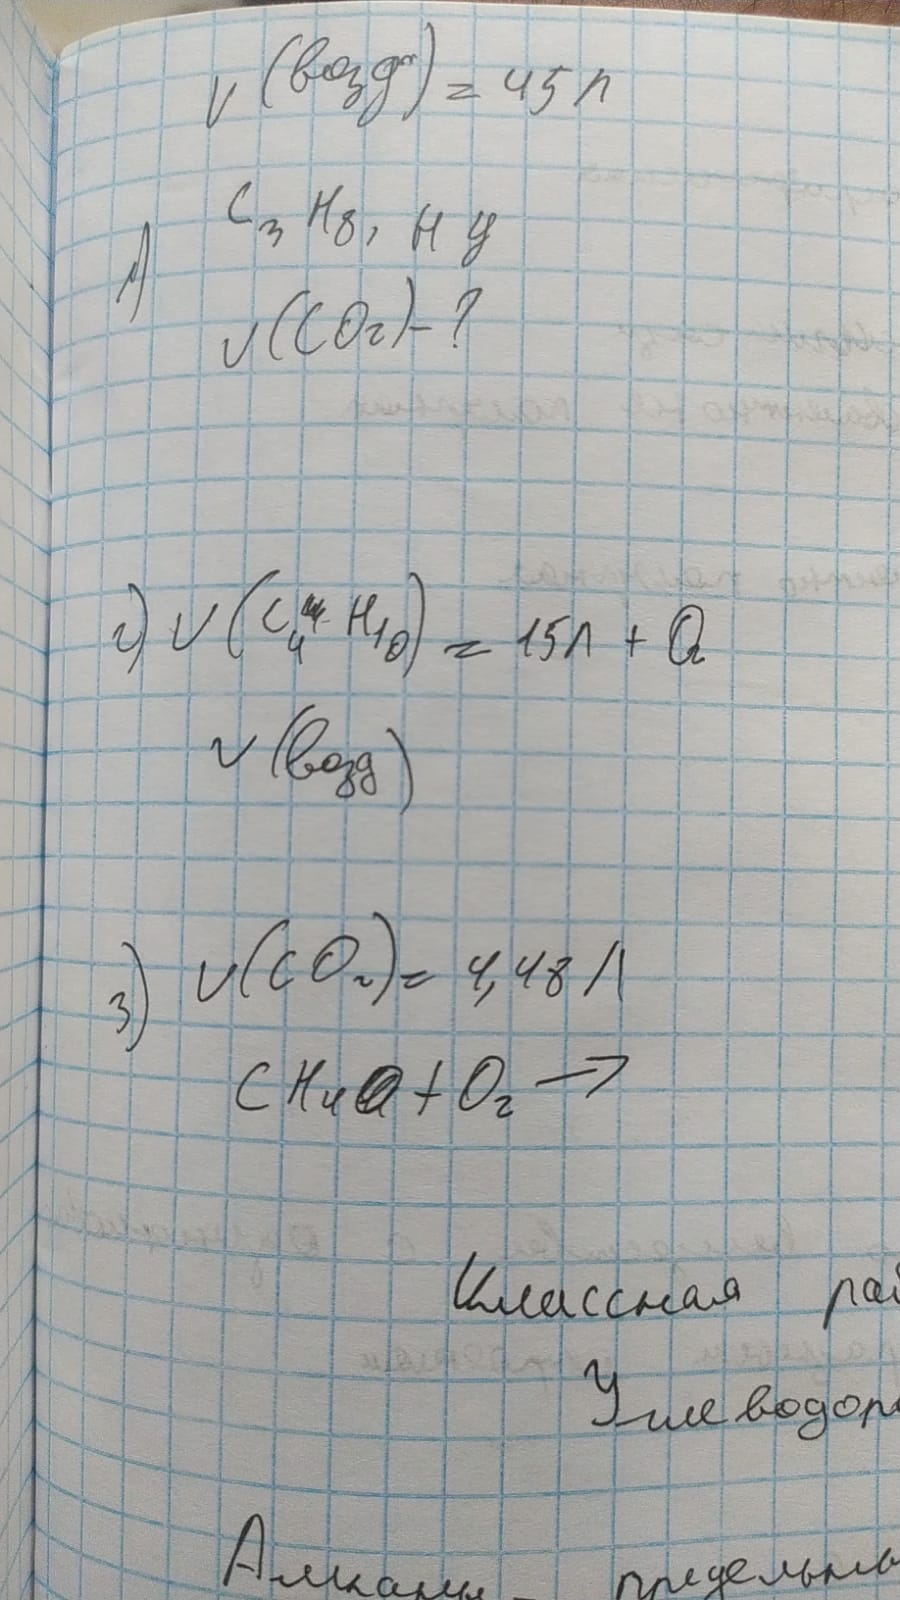 V(возд) = 45 л
1) C3H8, н у
V(CO2) - ?
2) V(C4H10) = 15 л + O2
V(возд)
3) V(CO2) = 4,48 л
CH4 + O2 →
Классная
Углеводор
Алканы - предельны